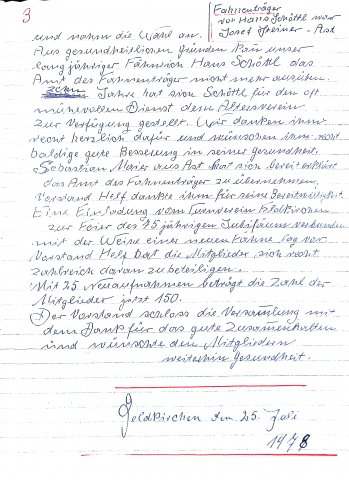 3
Fahnenträger
vor Hans Schöttl war
Josef Greimer - Ast
und nahm die Wahl an.
Aus gesundheitlichen Gründen kann unser
langjähriger Fähnrich Hans Schöttl das
Amt des Fahnenträger nicht mehr ausüben.
Zehn Jahre hat sich Schöttl für den oft
mühevollen Dienst dem Altersverein
zur Verfügung gestellt. Wir danken ihm
recht herzlich dafür und wünschen ihm recht
baldige gute Besserung in seiner Gesundheit.
Sebastian Maier aus Ast hat sich bereit erklärt
das Amt des Fahnenträger zu übernehmen.
Vorstand Helf dankte ihm für seine Bereitwilligkeit
Eine Einladung vom Turnverein
zur Feier des 25 jährigen Jubiläum verbunden
mit der Weihe einer neuen Fahne lag vor
Vorstand Helf bat die Mitglieder sich recht
zahlreich daran zu beteiligen.
Mit 25 Neuaufnahmen beträgt die Zahl der
Mitglieder jetzt 150.
Der Vorstand schloss die Versammlung mit
dem Dank für das gute Zusammenhalten
und wünschte den Mitgliedern
weiterhin Gesundheit.
Geldkirchen den 25. Juli
1978